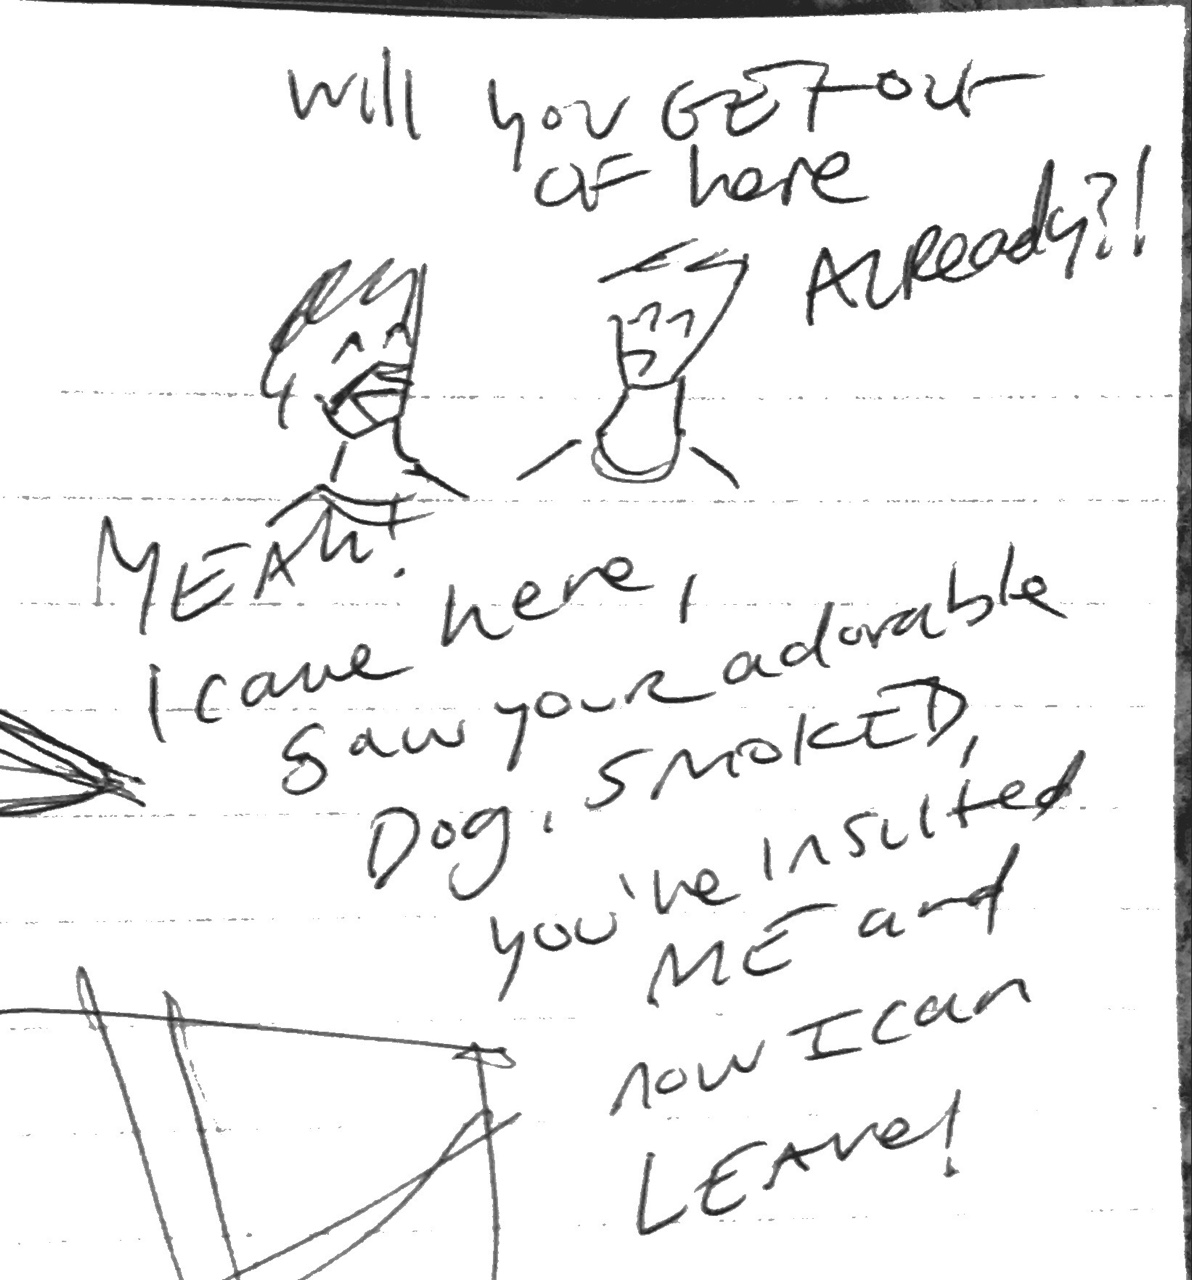 will you GET out
OF here
Already?!
YEAh!
I came here,
saw your adorable
Dog, SMOKED,
you've insulted
ME and
now I can
LEAve!